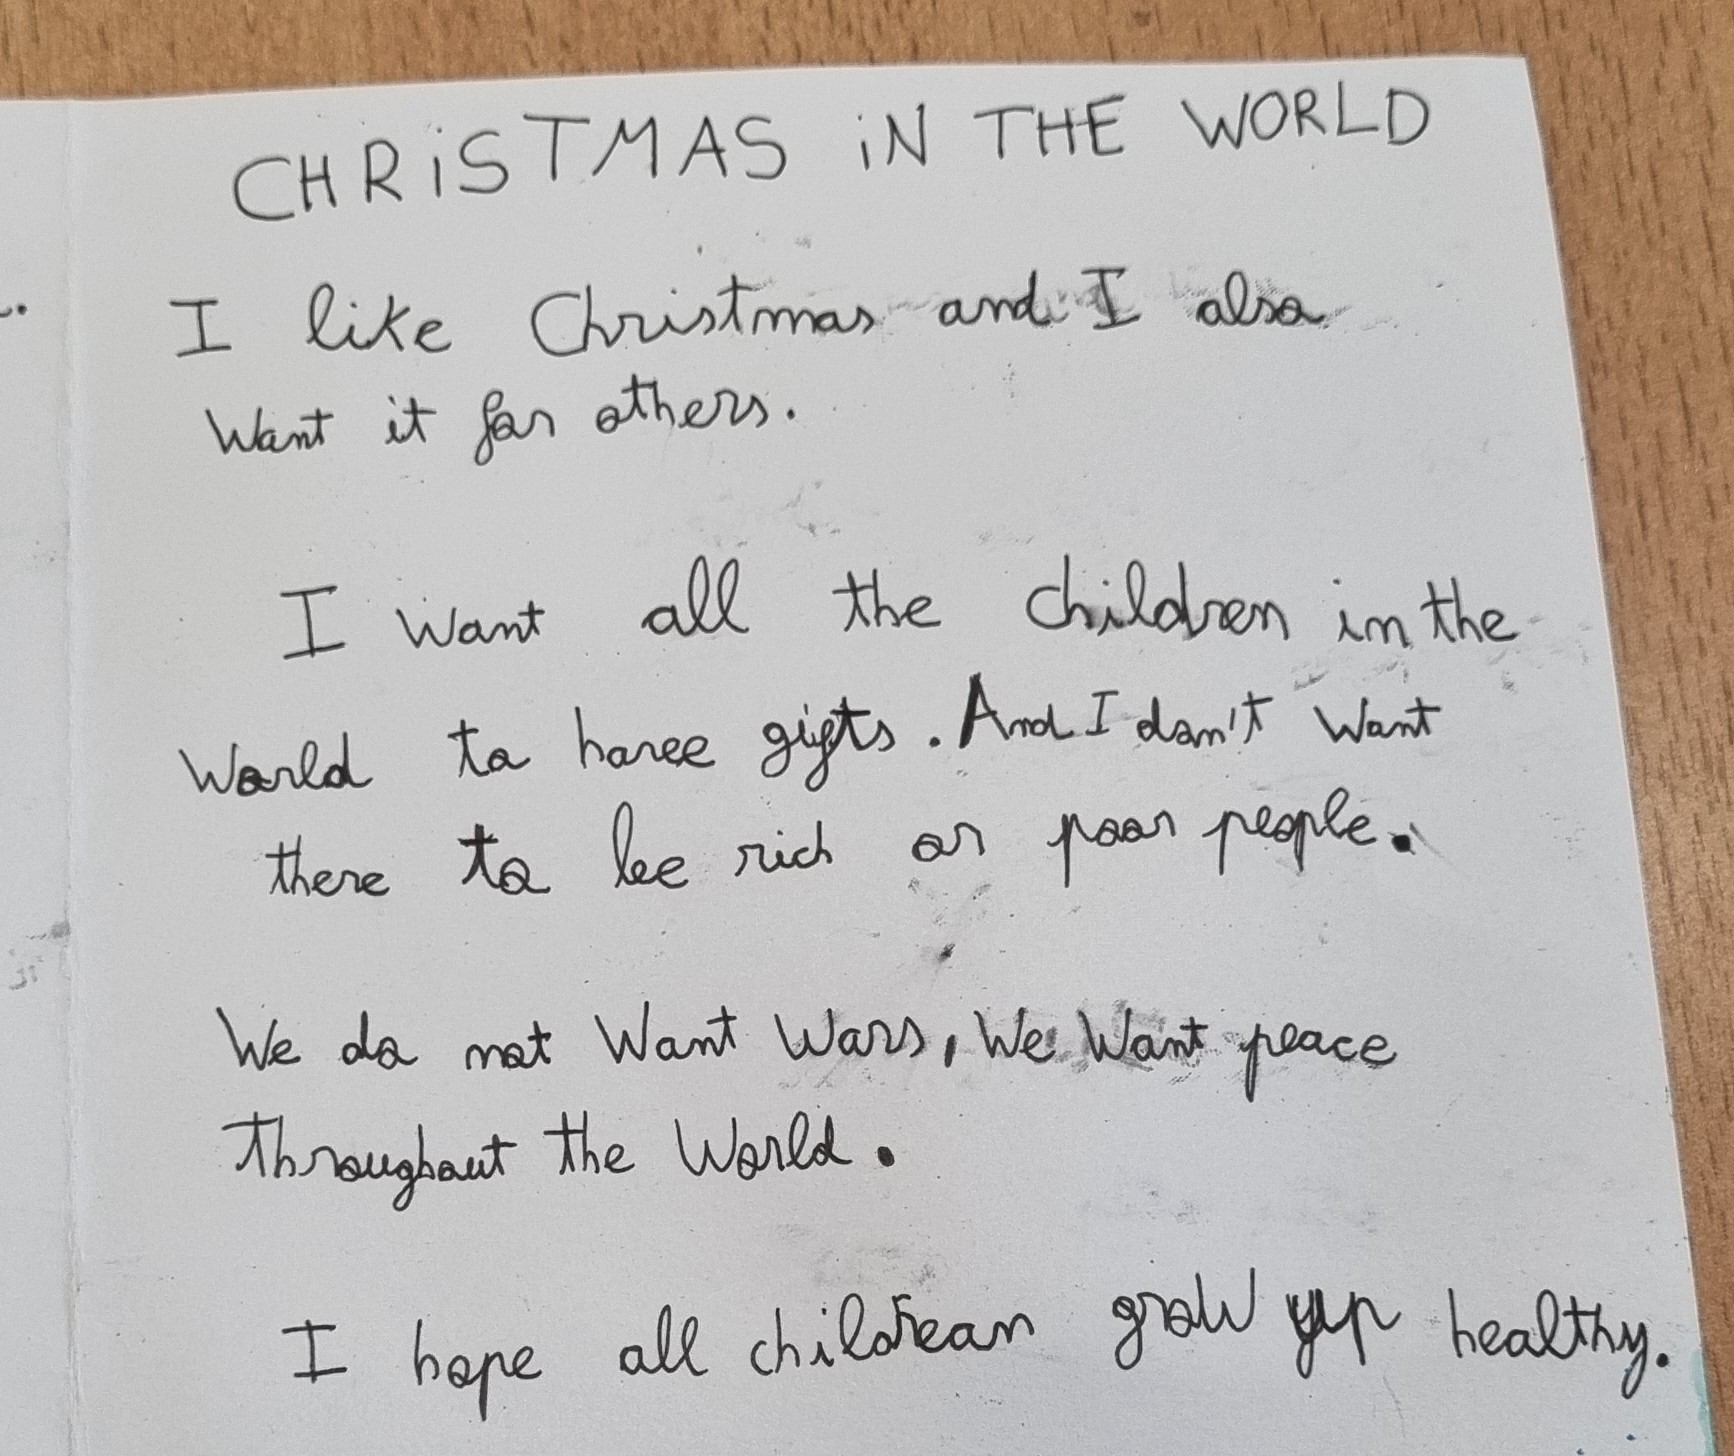 CHRiSTMAS iN THE WORLD
I like Christmas and I also
Want it for others.
I want all the children in the
World to havee gifts. And I don't want
there to be rich or poor people.
We do not Want Wars, We Want peace
throughout the World.
I hope all childrean grow yup healthy.